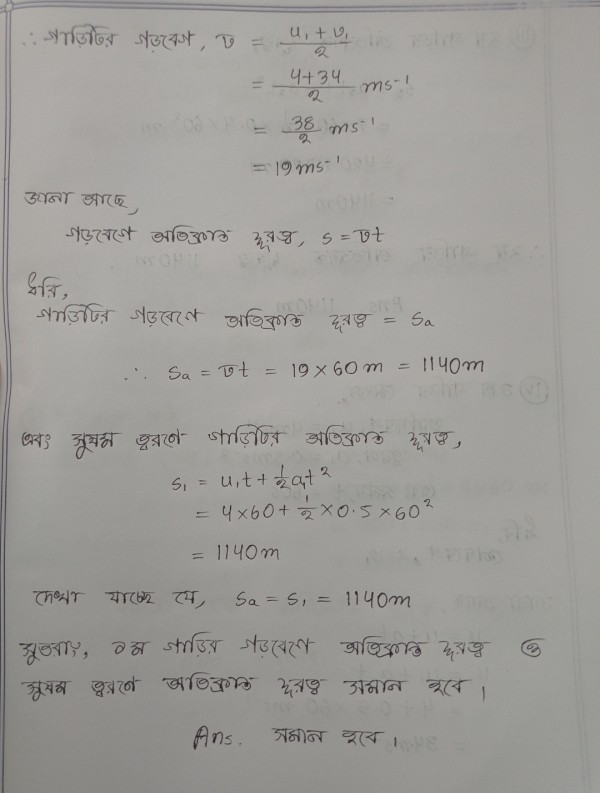 ∴ গাড়িটির গড়বেগ, v = (u₁ + v₁)/2
= (4+34)/2 ms⁻¹
= 38/2 ms⁻¹
= 19 ms⁻¹
জানা আছে,
গড়বেগে অতিক্রান্ত দূরত্ব, s = vt
ধরি,
গাড়িটির গড়বেগে অতিক্রান্ত দূরত্ব = Sa
∴ Sa = vt = 19 × 60 m = 1140m
এবং সুষম ত্বরণে গাড়িটির অতিক্রান্ত দূরত্ব,
s₁ = u₁t + ½a₁t²
= 4×60 + ½ × 0.5 × 60²
= 1140m
দেখা যাচ্ছে যে, Sa = S₁ = 1140m
সুতরাং, ১ম গাড়ির গড়বেগে অতিক্রান্ত দূরত্ব ও
সুষম ত্বরণে অতিক্রান্ত দূরত্ব সমান হবে।
Ans. সমান হবে।